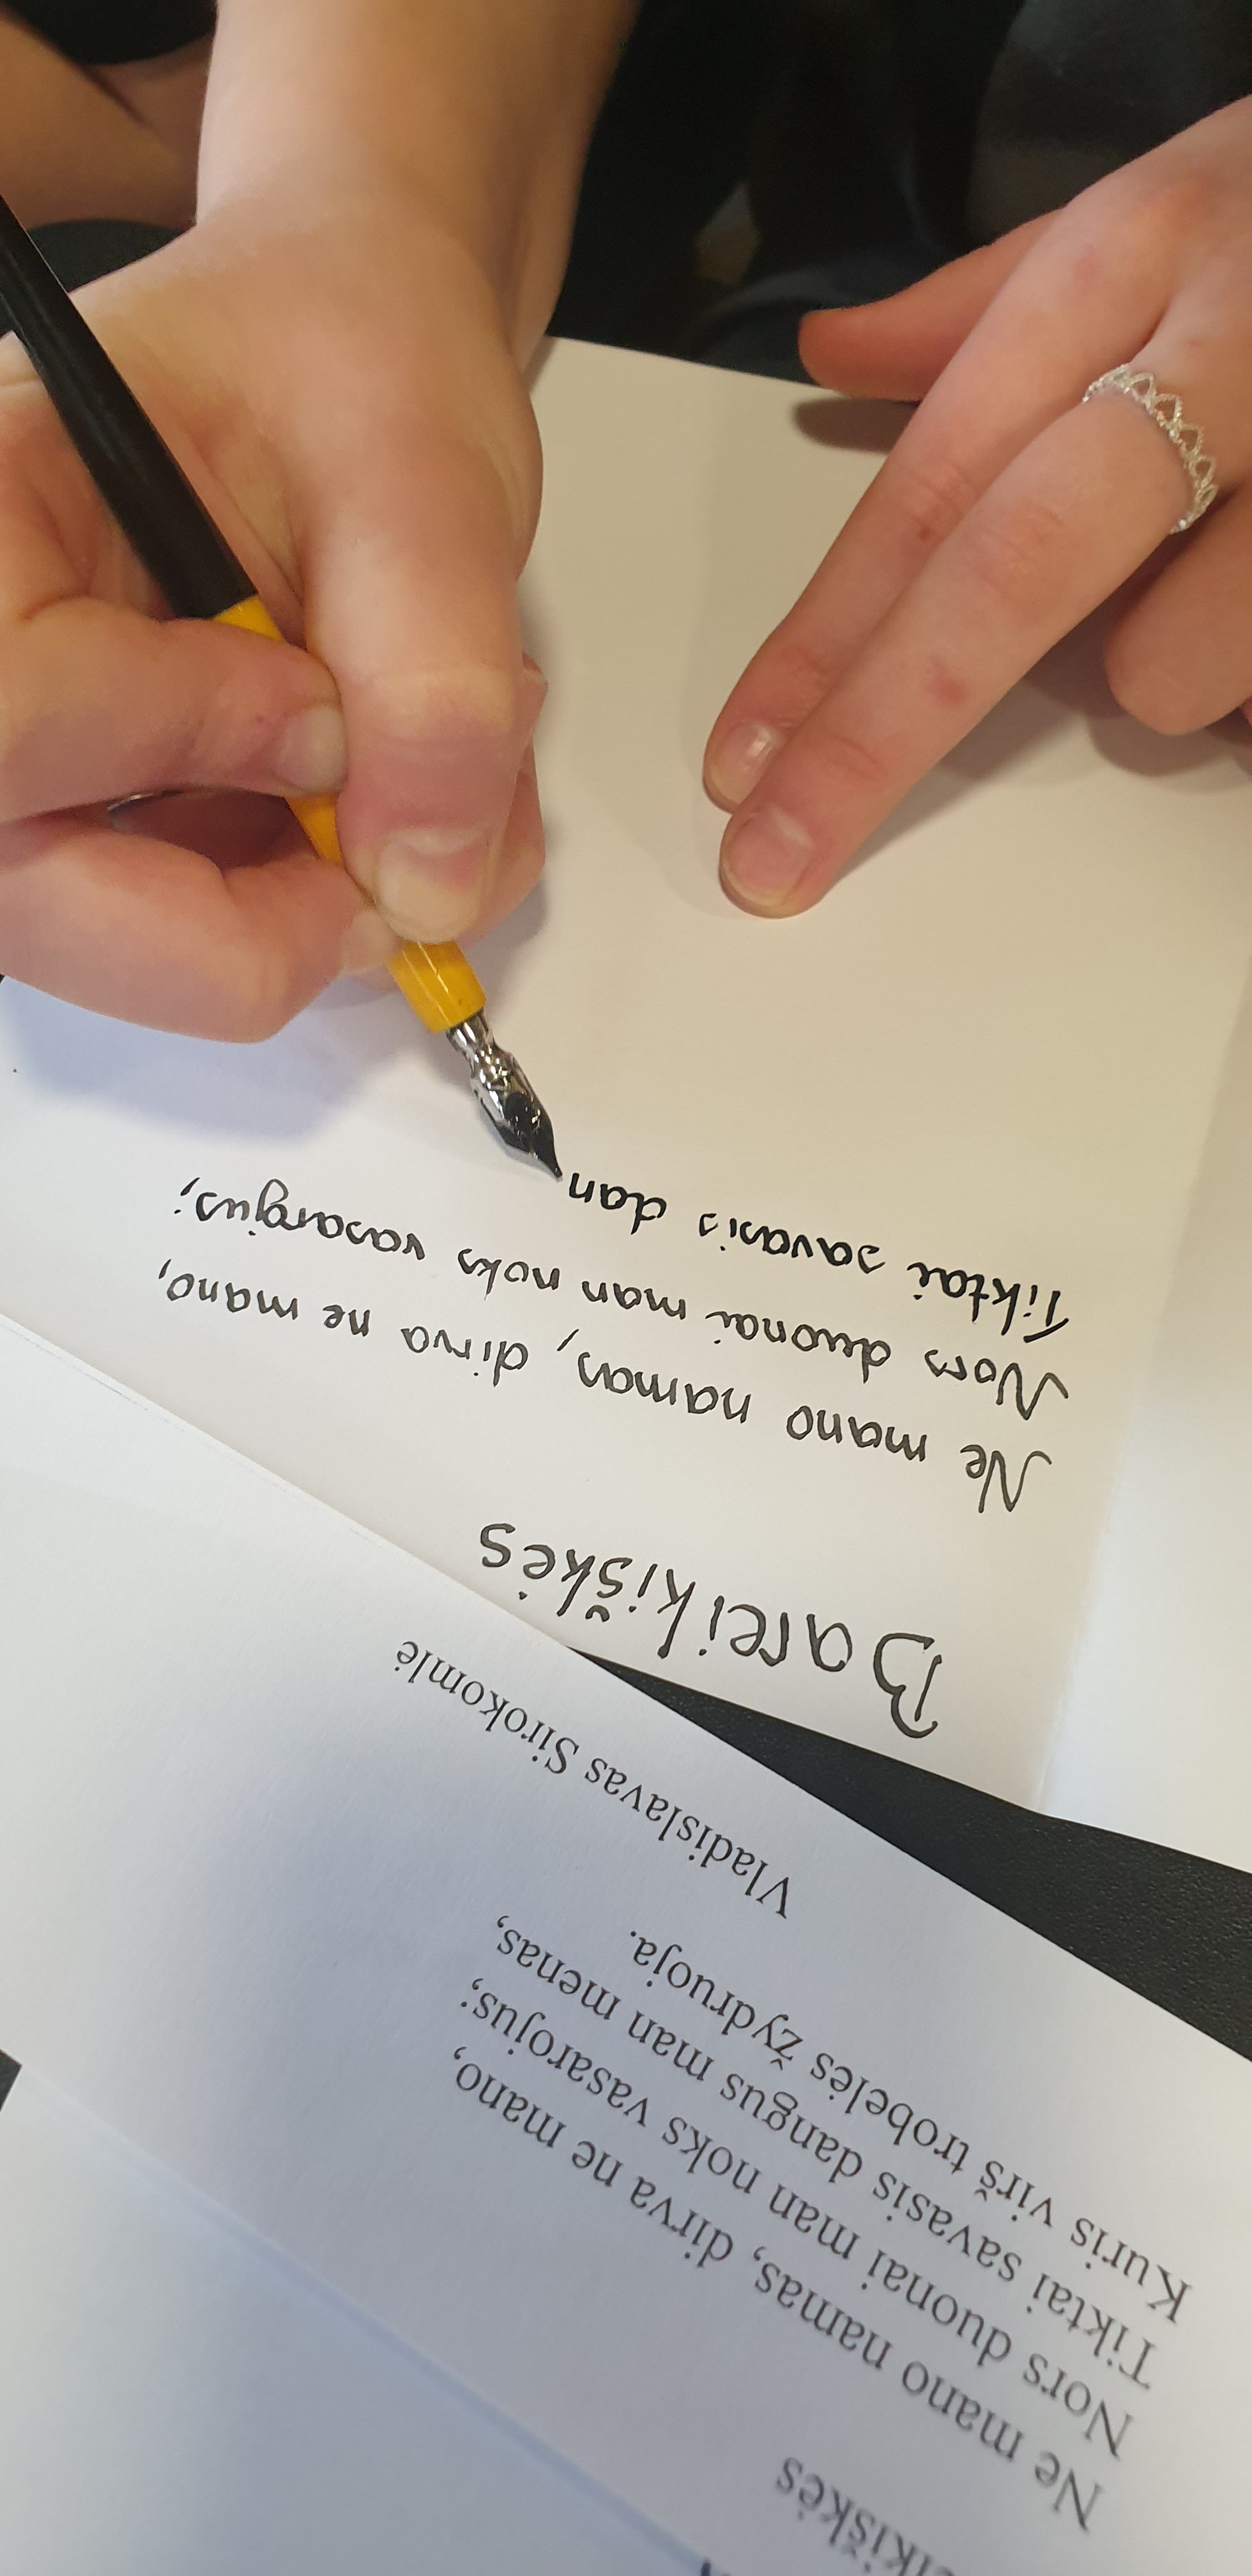 eikiškės
Ne mano namas, dirva ne mano,
Nors duonai man noks vasarojus;
Tiktai savasis dangus man menas,
Kuris virš trobelės žydruoja.
Vladislavas Sirokomlė
Bareikiškės
Ne mano namas, dirva ne mano,
Nors duonai man noks vasarojus;
Tiktai savasis dan